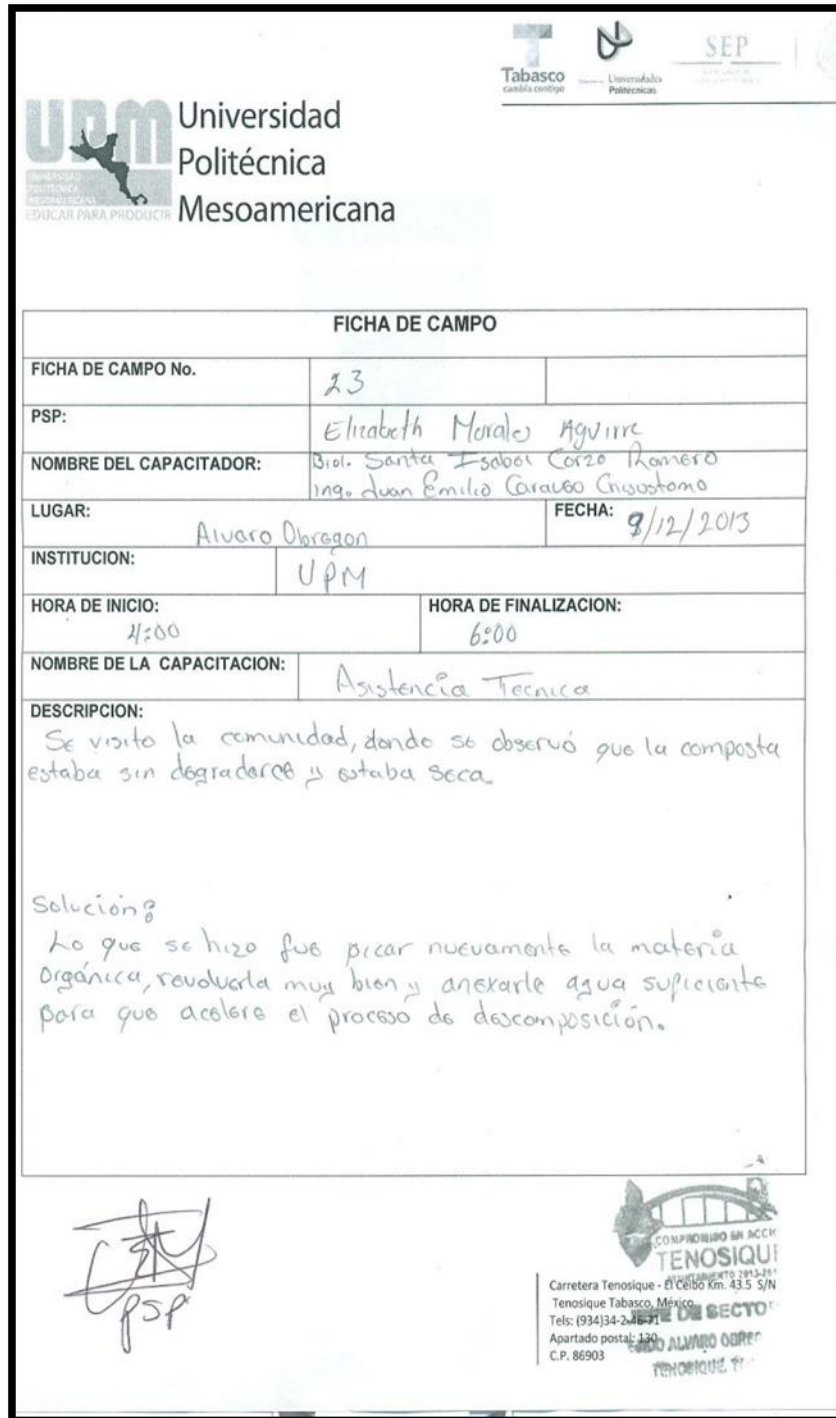 Tabasco
cambia contigo
Universidades
Politécnicas
SEP
UPM
UNIVERSIDAD
POLITECNICA
MESOAMERICANA
EDUCAR PARA PRODUCIR
Universidad
Politécnica
Mesoamericana
FICHA DE CAMPO
FICHA DE CAMPO No. 23
PSP: Elizabeth Morales Aguirre
NOMBRE DEL CAPACITADOR: Biol. Santa Isabel Corzo Romero
Ing. Juan Emilio Carauso Crisostomo
LUGAR: Alvaro Obregon FECHA: 9/12/2013
INSTITUCION: UPM
HORA DE INICIO: HORA DE FINALIZACION:
4:00 6:00
NOMBRE DE LA CAPACITACION: Asistencia Tecnica
DESCRIPCION:
Se visito la comunidad, donde se observó que la composta
estaba sin degradarce y estaba seca.
Solución:
Lo que se hizo fue picar nuevamente la materia
Orgánica, revolverla muy bien y anexarle agua suficiente
para que acelere el proceso de descomposición.
PSP
COMPROMISO EN ACCI
TENOSIQU
AYUNTAMIENTO 2013-201
Carretera Tenosique - El Ceibo Km. 43.5 S/N
Tenosique Tabasco, México
Tels: (934)34-2-46-71
DE SECTO
Apartado postal: 130
ALVARO OBRE
C.P. 86903
TENOSIQUE, T